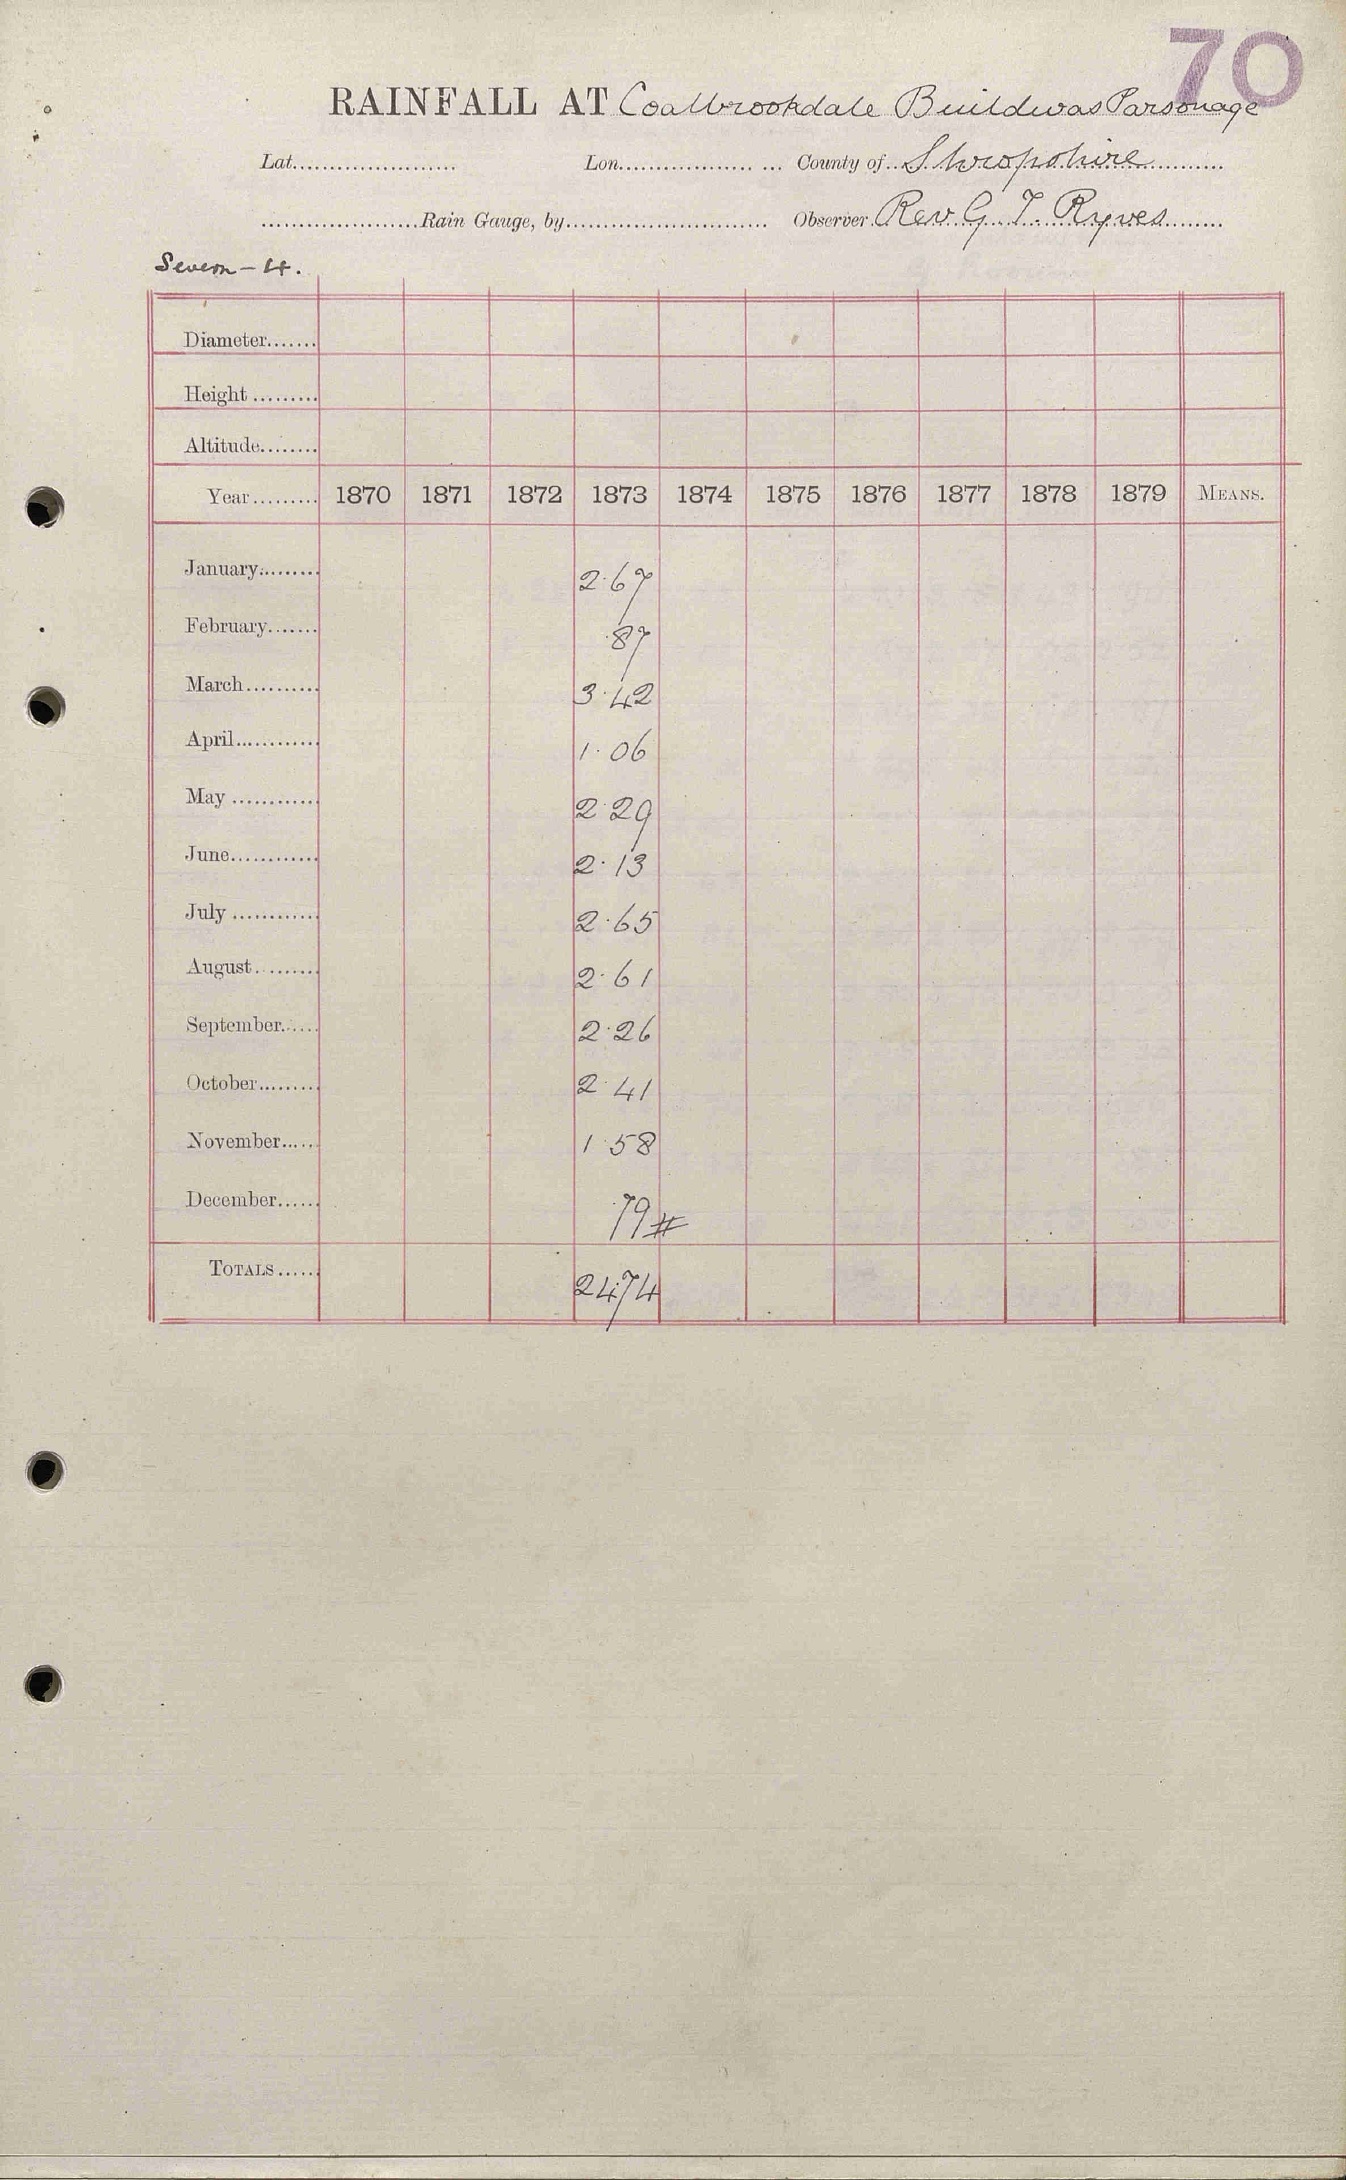 70
RAINFALL AT Coalbrookdale Buildwas Parsonage
Lat...................... Lon.................. ... County of Shropshire
......................Rain Gauge, by........................... Observer Rev G. T. Ryves
Severn - 4.
Diameter.......
Height .........
Altitude........
Year......... 1870 1871 1872 1873 1874 1875 1876 1877 1878 1879 MEANS.
January......... 2.67
February....... .87
March.......... 3.42
April............ 1.06
May ............ 2.29
June............ 2.13
July ............ 2.65
August......... 2.61
September...... 2.26
October......... 2.41
November..... 1.58
December...... .79#
TOTALS...... 24.74